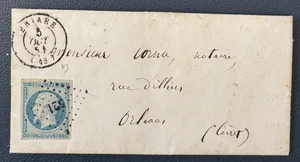 BRIARE
5
OCT
Monsieur Cornu, notaire,
rue d'illiers
Orléans
(Loiret)